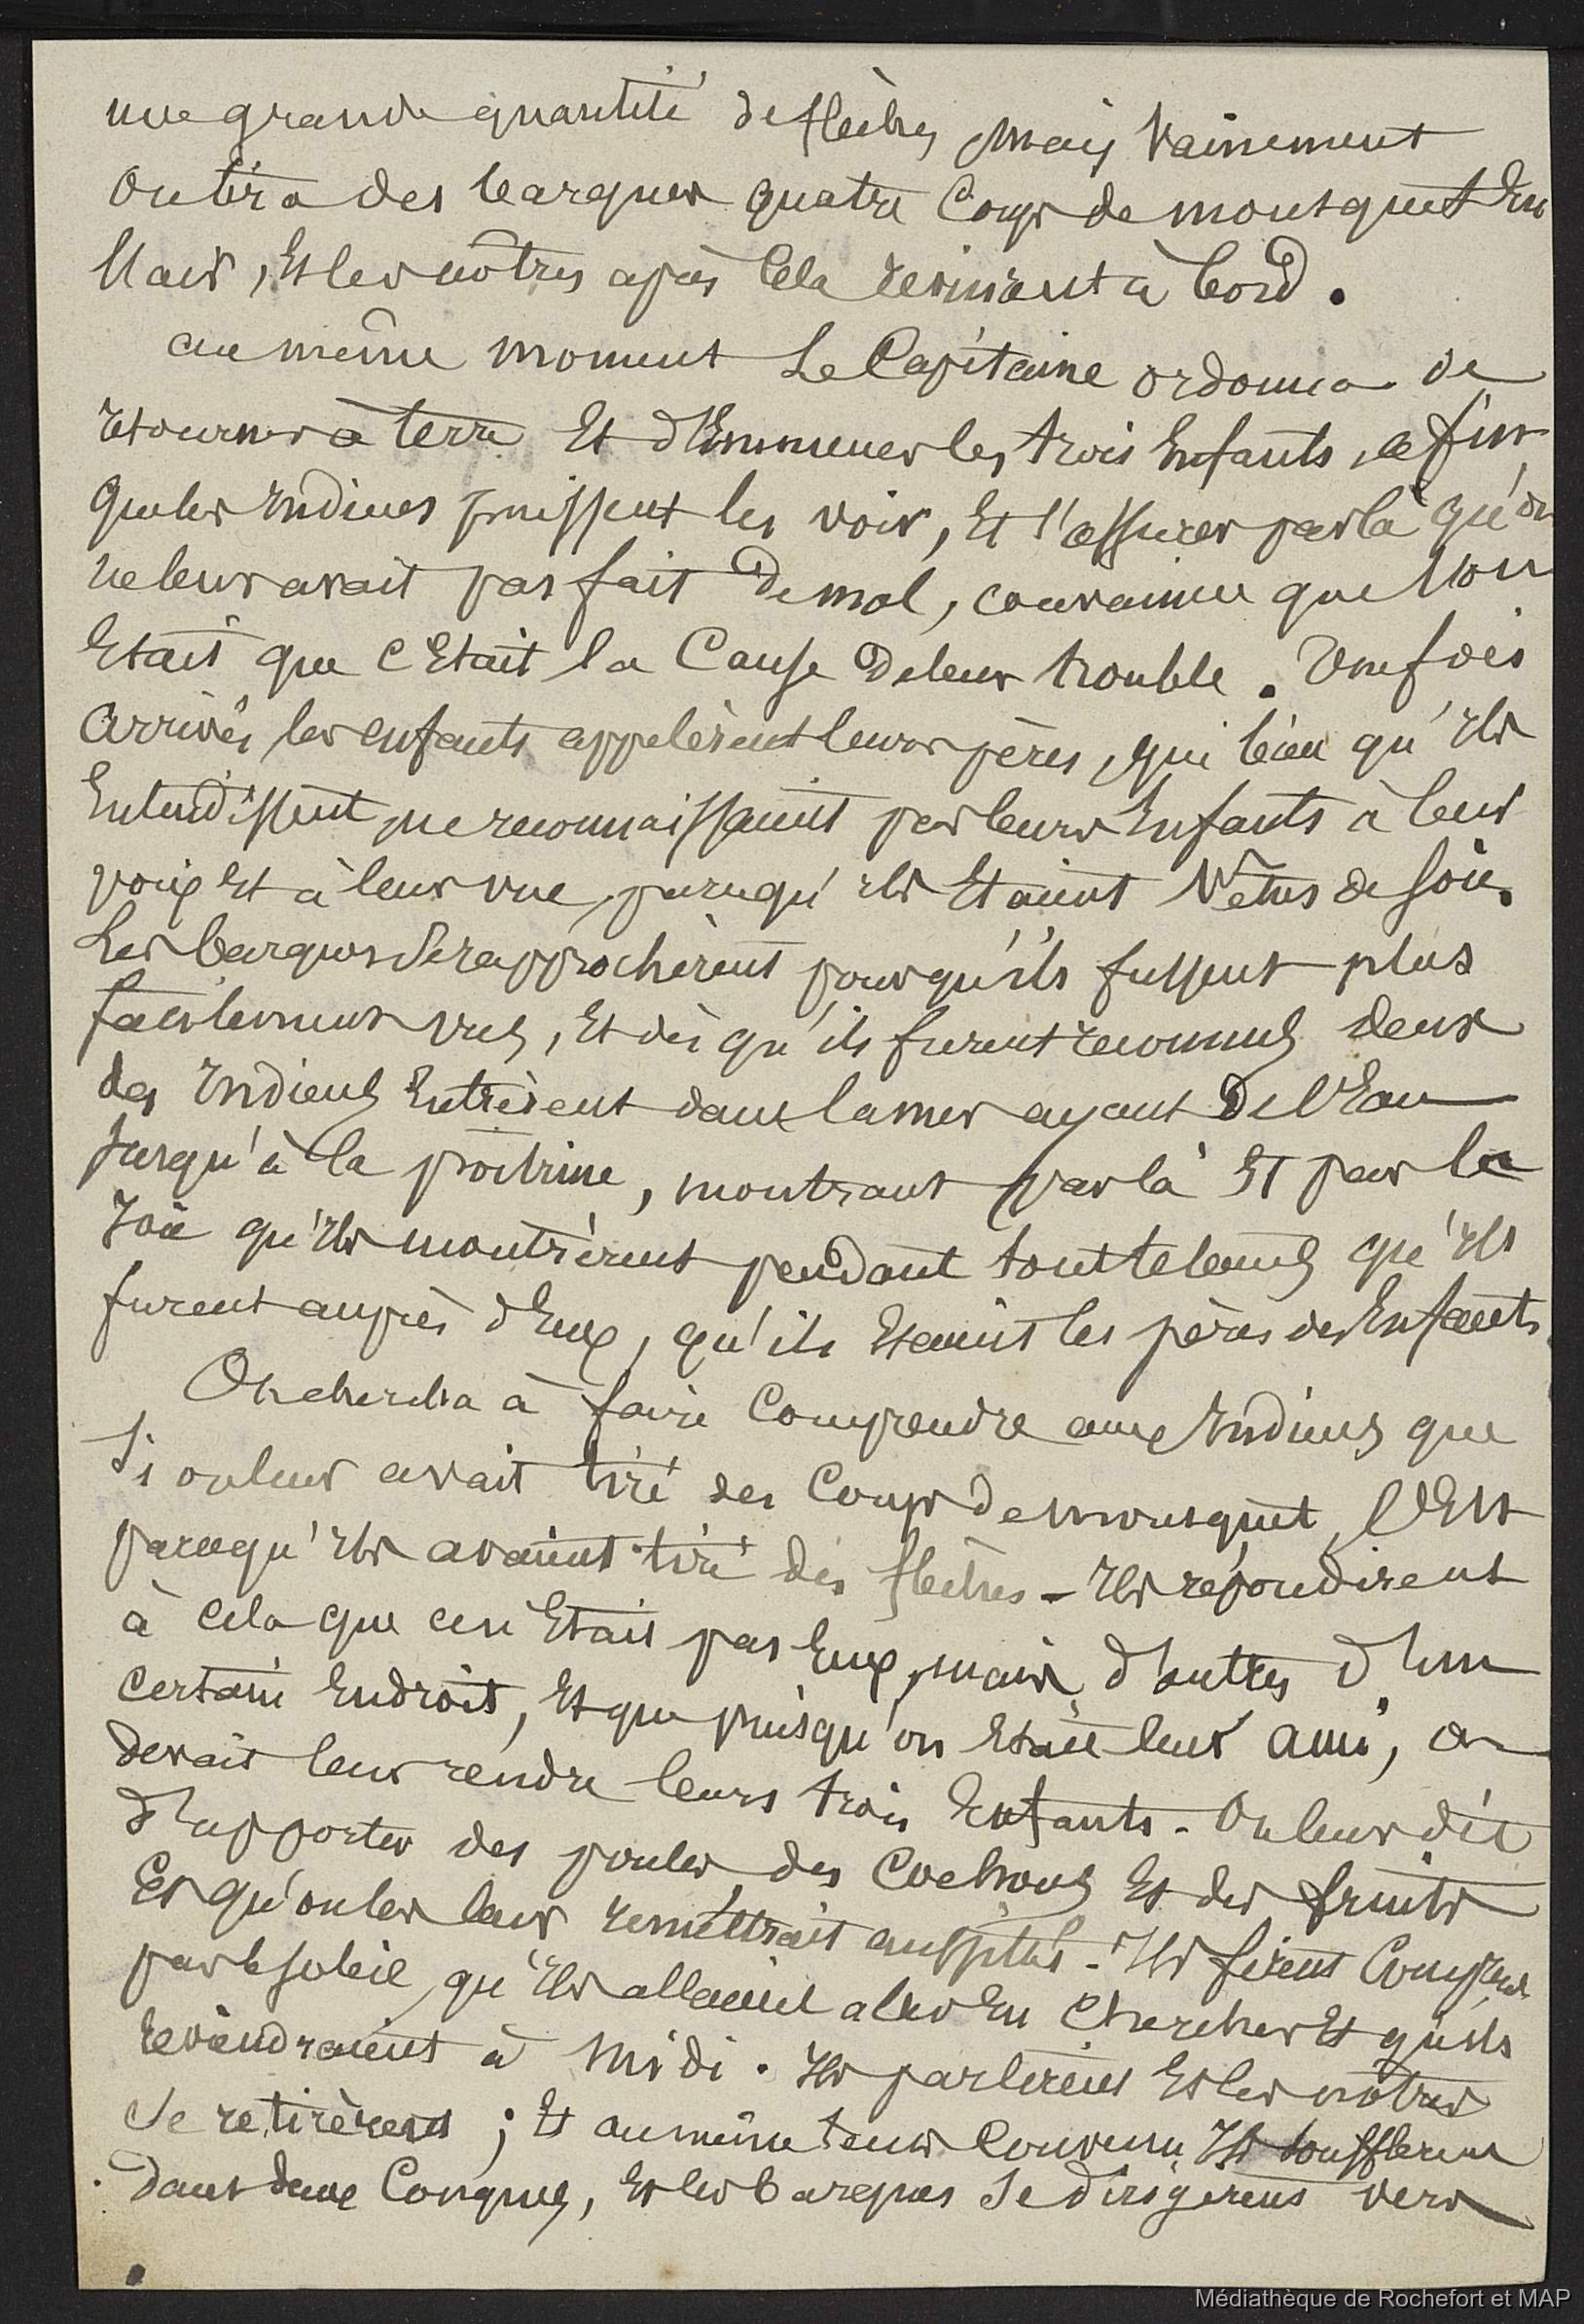 une grande quantité de flèches, mais vainement
On tira des barques quatre Coups de mousquet En
l'air, Et les nôtres après Cela revinrent à bord.
au même moment Le Capitaine ordonna de
retourner à terre Et d'Emmener les trois Enfants, afin
que les Indiens puissent les voir, Et s'assurer par là qu'on
ne leur avait pas fait de mal, convaincu que l'on
Etait que c'Etait la Cause de leur trouble. Une fois
Arrivés les enfants appelèrent leurs pères, qui bien qu'ils
Entendissent, ne reconnaissaient pas leurs Enfants à leur
voix Et à leur vue, parcequ'ils Etaient Vêtus de soie.
Les barques se rapprochèrent pour qu'ils fussent plus
facilement vus, Et dès qu'ils furent reconnus deux
des Indiens Entrèrent dans la mer ayant de l'Eau
jusqu'à la poitrine, montrant par là Et par la
joie qu'ils montrèrent pendant tout le temps qu'ils
furent auprès d'Eux, qu'ils Etaient les pères des Enfants.
On chercha à faire Comprendre aux Indiens que
Si on leur avait tiré des Coups de mousquet, C'Est
parcequ'ils avaient tiré des flèches - Ils répondirent
à cela que ce n'Etait pas Eux, mais d'autres d'un
Certain Endroit, Et que puisqu'on Etait leur ami, on
devait leur rendre leurs trois Enfants - On leur dit
d'apporter des poules, des Cochons Et des fruits
Et qu'on les leur remettrait aussitôt - Ils firent Comprendre
par le soleil, qu'ils allaient aller En Chercher Et qu'ils
reviendraient à Midi. Ils partirent Et les nôtres
Se retirèrent ; Et au même temps Convenu Ils soufflèrent
dans deux Conques, Et les barques Se dirigèrent vers
Médiathèque de Rochefort et MAP